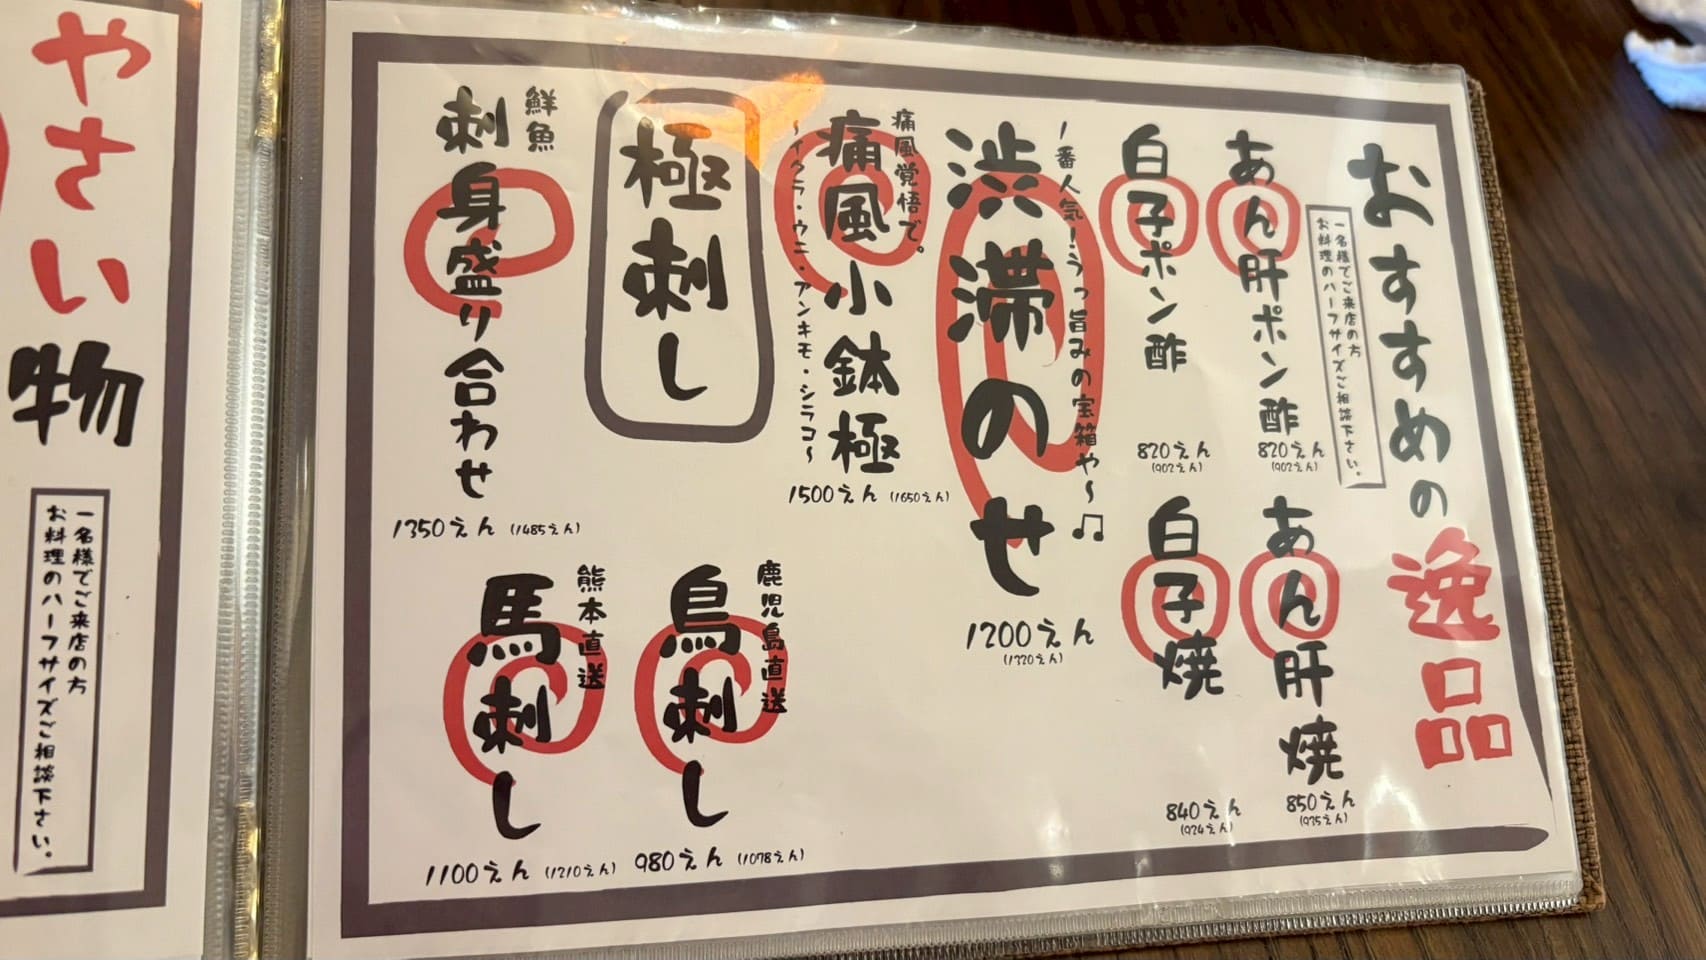 おすすめの逸品
一名様でご来店の方
お料理のハーフサイズご相談下さい。
あん肝ポン酢
820えん
(902えん)
あん肝焼
850えん
(935えん)
白子ポン酢
820えん
(902えん)
白子焼
840えん
(924えん)
一番人気!うっ旨みの宝箱や~♫
渋滞のせ
1200えん
(1320えん)
痛風覚悟で。
痛風小鉢極
~イクラ・ウニ・アンキモ・シラコ~
1500えん (1650えん)
極刺し
鮮魚
刺身盛り合わせ
1350えん (1485えん)
鹿児島直送
鳥刺し
980えん (1078えん)
熊本直送
馬刺し
1100えん (1210えん)
やさい物
一名様でご来店の方
お料理のハーフサイズご相談下さい。